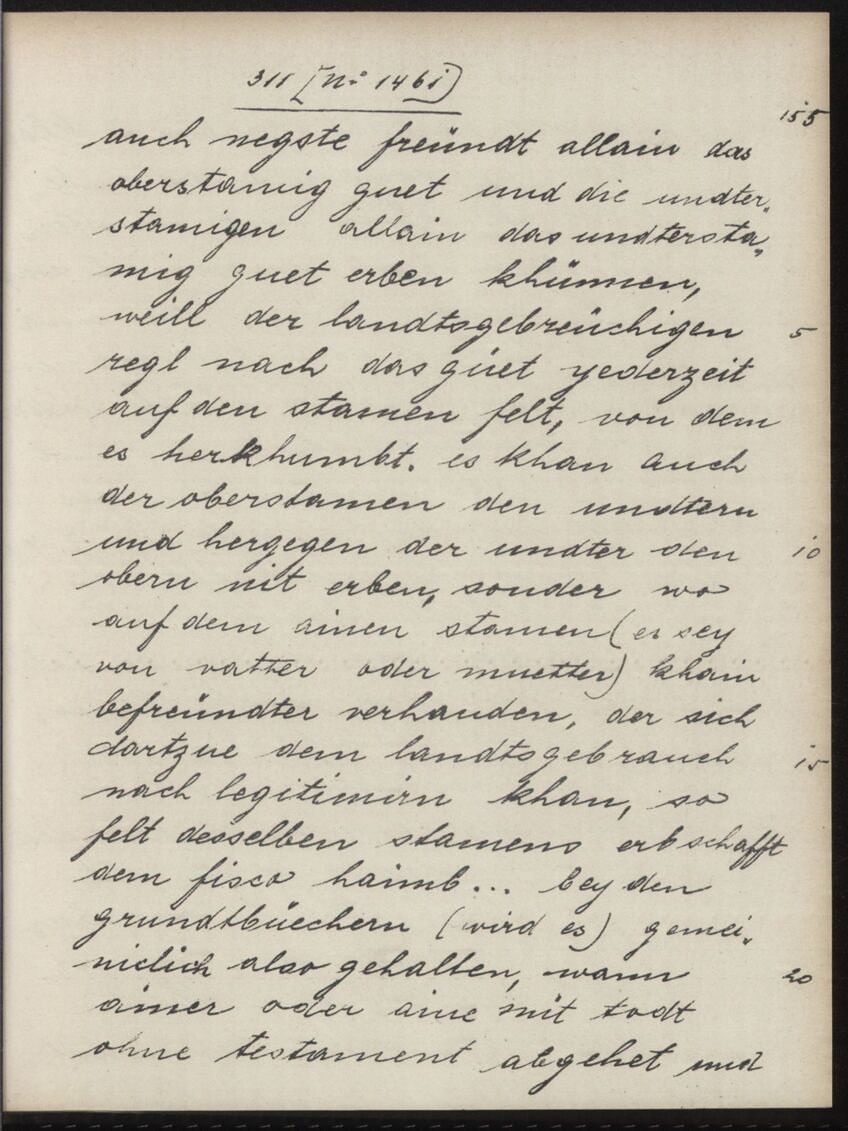 311 [No 1461]
155
auch negste freündt allain das
oberstamig guet und die undter„
stamigen allain das undtersta„
mig guet erben khünnen,
weill der landtsgebreüchigen 5
regl nach das güet yederzeit
auf den stamen felt, von dem
es herkhumbt. es khan auch
der oberstamen den undtern
und hergegen der undter den 10
obern nit erben, sonder wo
auf dem ainen stamen (es sey
von vatter oder muetter) khain
befreündter verhanden, der sich
dartzue dem landtsgebrauch 15
nach legitimirn khan, so
felt desselben stamens erbschafft
dem fisco haimb... bey den
grundtbüechern (wird es) gemei„
niclich also gehalten, wann 20
ainer oder aine mit todt
ohne testament abgehet und